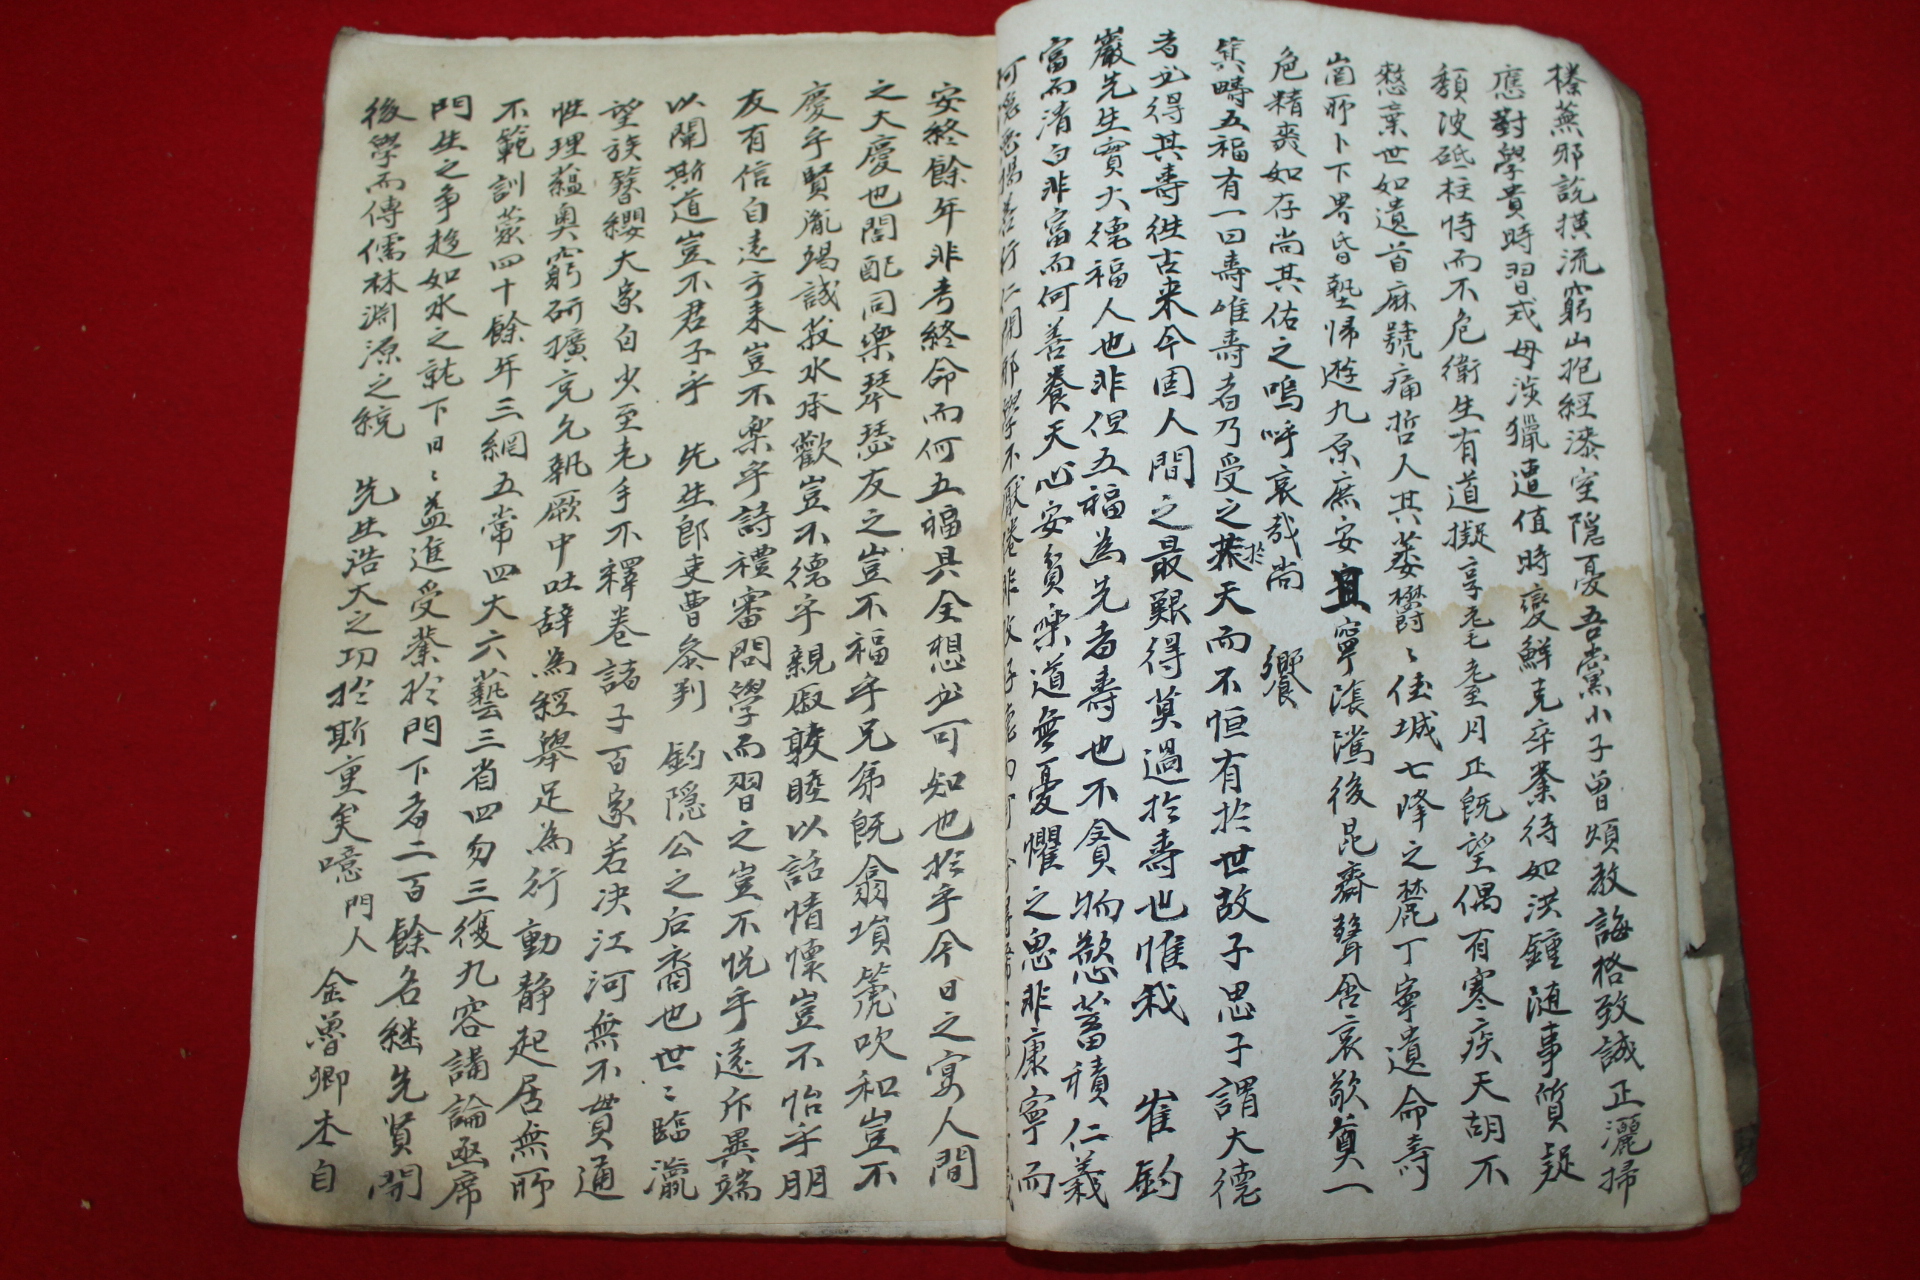 榛蕪邪說橫流窮山抱經漆室隱憂吾黨小子曾煩敎誨格致誠正灑掃
應對學貴時習式毋涉獵遭値時變鮮克卒業待如洪鍾随事質疑
頹波砥柱恃而不危衛生有道擬享耄耋至月正旣望偶有寒疾天胡不
憗棄世如遺首麻號痛哲人其萎欝〻佳城七降之麓丁寧遺命壽
崮所卜下畀昏墊帰遊九原庶安且寧蔭隲後昆齋聲含哀敬奠一
危精爽如存尚其佑之嗚呼哀哉尚 饗
箕疇五福有一曰壽唯壽者乃受之於天而不恒有於世故子思子謂大德
者必得其壽徃古來今固人間之最艱得莫過於壽也惟我 崔鈞
巖先生實大德福人也非但五福為先者壽也不貪物慾蓄積仁義
富而淸白非富而何善養天心安貧樂道無憂懼之思非康寧而
安終餘年非考終命而何五福具全想必可知也於乎今日之宴人間
之大慶也閤配同樂琴瑟友之豈不福乎兄弟旣翕塤篪吹和豈不
慶乎賢胤竭誠菽水承歡豈不德乎親戚敦睦以話情懷豈不怡乎朋
友有信自遠方来豈不樂乎詩禮審問學而習之豈不悅乎遠斥異端
以闡斯道豈不君子乎 先生郎吏曹叅判 釣隱公之后裔也世〻臨瀛
望族簪纓大家自少至老手不釋卷諸子百家若决江河無不貫通
性理蘊奥窮硏擴充允執厥中吐辞為經舉足為行動静起居無所
不範訓蒙四十餘年三綱五常四大六藝三省四勿三復九容講論函席
門生之争趍如水之就下日〻益進受業於門下者二百餘名継先賢開
後學而傳儒林淵源之統 先生浩大之功於斯重矣噫門人 金魯卿本自